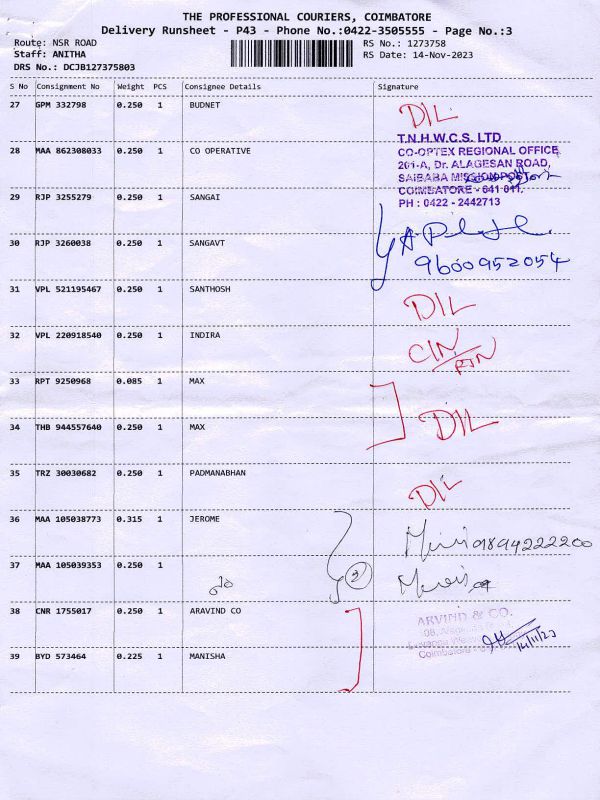 THE PROFESSIONAL COURIERS, COIMBATORE
Delivery Runsheet - P43 - Phone No.:0422-3505555 - Page No.:3
Route: NSR ROAD RS No.: 1273758
Staff: ANITHA RS Date: 14-Nov-2023
DRS No.: DCJB127375803
S No Consignment No Weight PCS Consignee Details Signature
27 GPM 332798 0.250 1 BUDNET DIL
T.N.H.W.C.S. LTD
28 MAA 862308033 0.250 1 CO OPERATIVE CO-OPTEX REGIONAL OFFICE,
201-A, Dr. ALAGESAN ROAD,
SAIBABA MISSION POST
COIMBATORE - 641 011.
29 RJP 3255279 0.250 1 SANGAI PH : 0422 - 2442713
30 RJP 3260038 0.250 1 SANGAVT
9600952054
31 VPL 521195467 0.250 1 SANTHOSH DIL
32 VPL 220918540 0.250 1 INDIRA CIN/RTN
33 RPT 9250968 0.085 1 MAX
34 THB 944557640 0.250 1 MAX DIL
35 TRZ 30030682 0.250 1 PADMANABHAN DIL
36 MAA 105038773 0.315 1 JEROME 9894222200
37 MAA 105039353 0.250 1 2
38 CNR 1755017 0.250 1 ARAVIND CO ARVIND & CO.
14/11/23
Coimbatore
39 BYD 573464 0.225 1 MANISHA